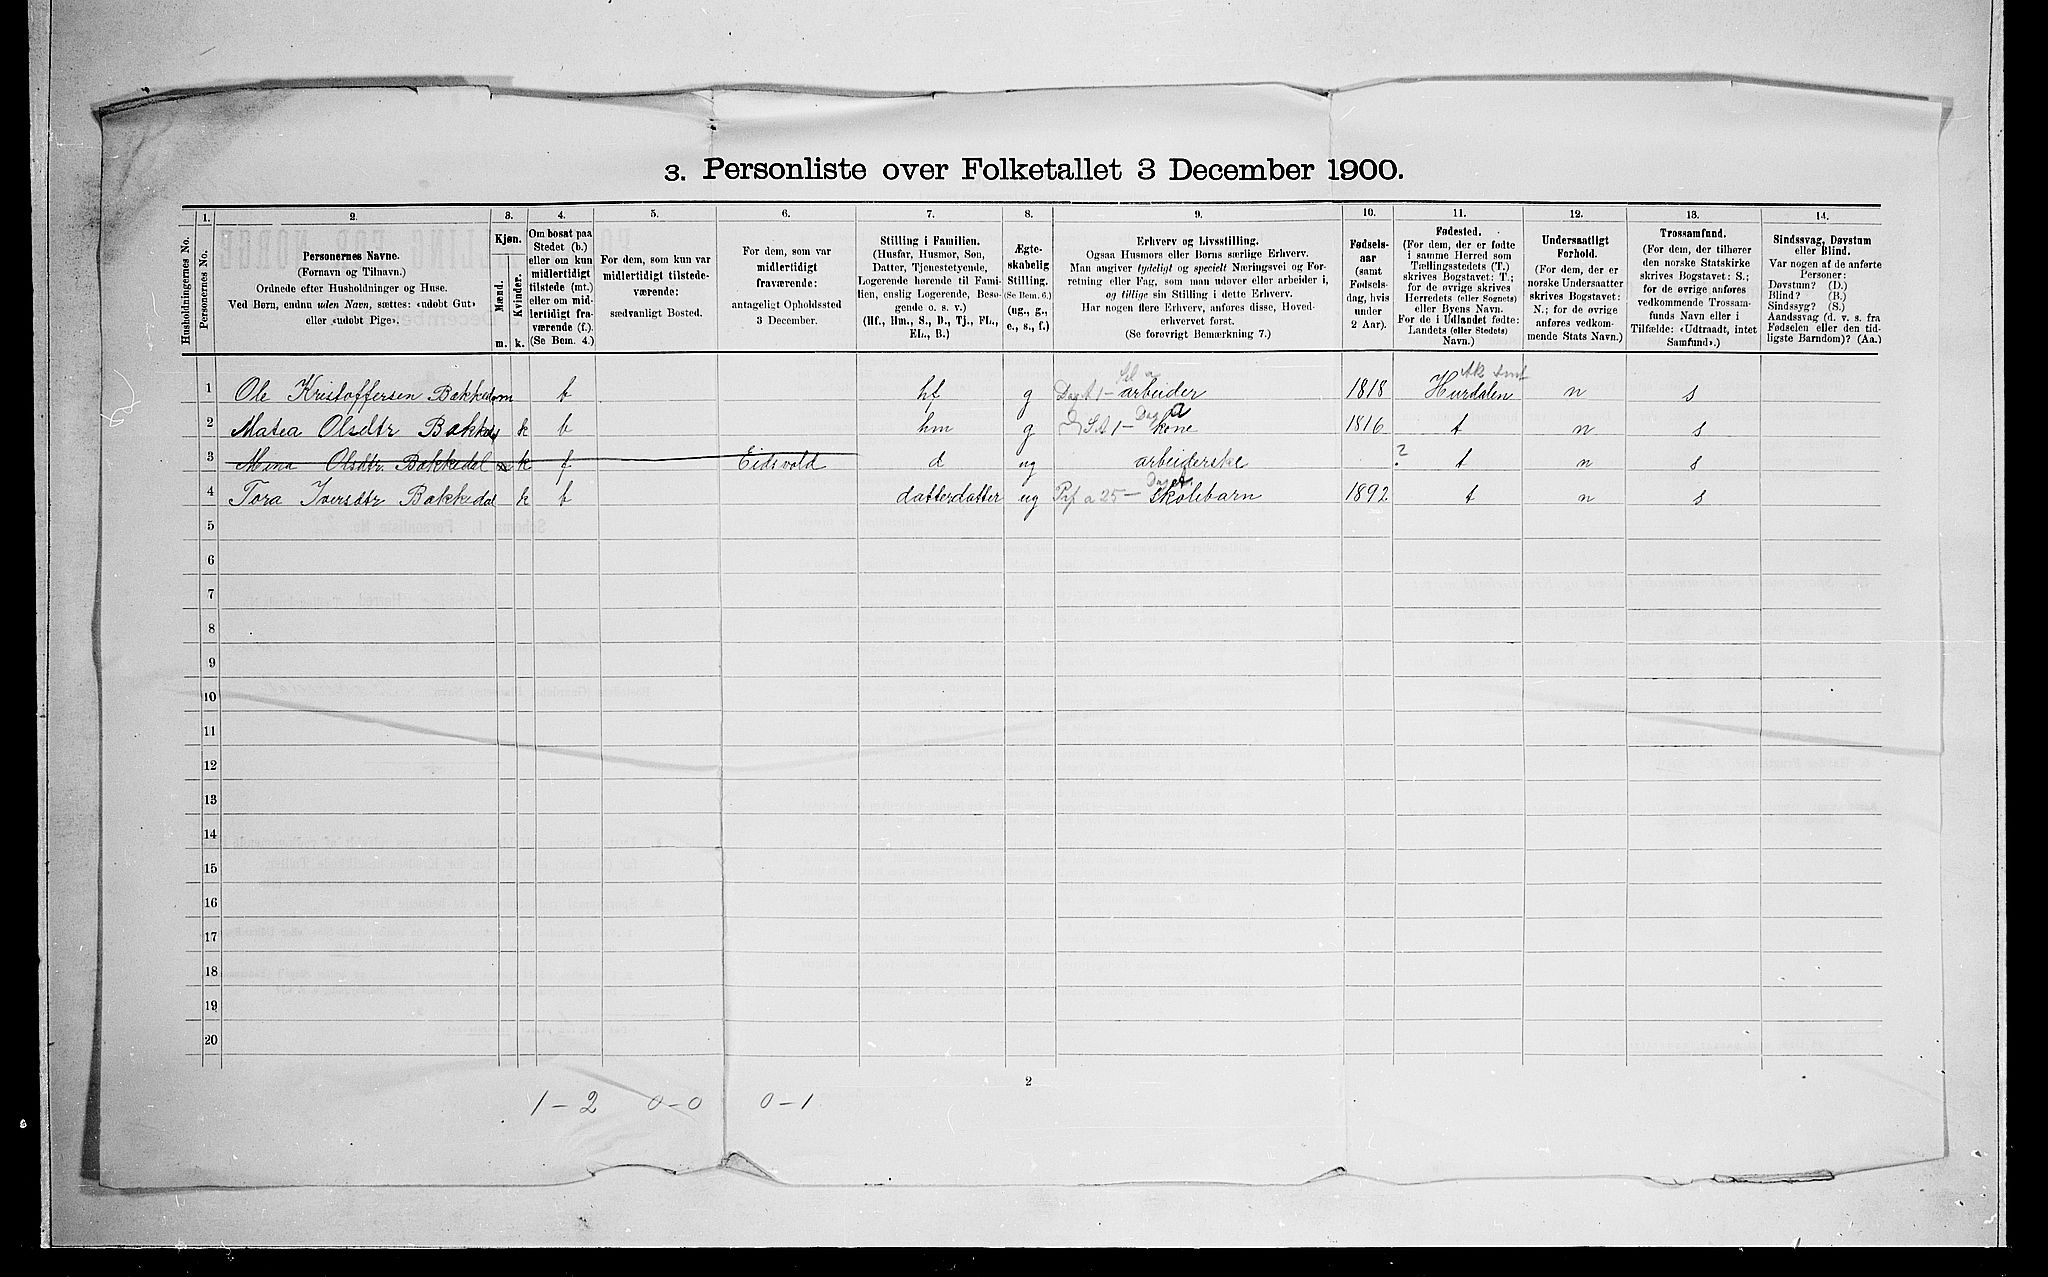 3. Personliste over Folketallet 3 December 1900.
1. 2. 3. 4. 5. 6. 7. 8. 9. 10. 11. 12. 13. 14.
Husholdningernes No.
Personernes No.
Personernes Navne.
(Fornavn og Tilnavn.)
Ordnede efter Husholdninger og Huse.
Ved Børn, endnu uden Navn, sættes: «udøbt Gut»
eller «udøbt Pige».
Kjøn.
Mænd.
Kvinder.
m. k.
Om bosat paa
Stedet (b.)
eller om kun
midlertidigt
tilstede (mt.)
eller om mid-
lertidigt fra-
værende (f.)
(Se Bem. 4.)
For dem, som kun var
midlertidigt tilstede-
værende:
sædvanligt Bosted.
For dem, som var
midlertidigt
fraværende:
antageligt Opholdssted
3 December.
Stilling i Familien.
(Husfar, Husmor, Søn,
Datter, Tjenestetyende,
Logerende hørende til Fami-
lien, enslig Logerende, Besø-
gende o. s. v.)
(Hf., Hm., S., D., Tj., FL.,
EL., B.)
Ægte-
skabelig
Stilling.
(Se Bem. 6.)
(ug., g.,
e., s., f.)
Erhverv og Livsstilling.
Ogsaa Husmors eller Børns særlige Erhverv.
Man angiver tydeligt og specielt Næringsvei og For-
retning eller Fag, som man udøver eller arbeider i,
og tillige sin Stilling i dette Erhverv.
Har nogen flere Erhverv, anføres disse, Hoved-
erhvervet først.
(Se forøvrigt Bemærkning 7.)
Fødsels-
aar
(samt
Fødsels-
dag, hvis
under
2 Aar).
Fødested.
(For dem, der er fødte
i samme Herred som
Tællingsstedets (T.)
skrives Bogstavet: T.;
for de øvrige skrives
Herredets (eller Sognets)
eller Byens Navn.
For de i Udlandet fødte:
Landets (eller Stedets)
Navn.)
Undersaatligt
Forhold.
(For dem, der er
norske Undersaatter
skrives Bogstavet:
N.; for de øvrige
anføres vedkom-
mende Stats Navn.)
Trossamfund.
(For dem, der tilhører
den norske Statskirke
skrives Bogstavet: S.;
for de øvrige anføres
vedkommende Trossam-
funds Navn eller i
Tilfælde: «Udtraadt, intet
Samfund».)
Sindssvag, Døvstum
eller Blind.
Var nogen af de anførte
Personer:
Døvstum? (D.)
Blind? (B.)
Sindssyg? (S.)
Aandssvag (d. v. s. fra
Fødselen eller den tid-
ligste Barndom)? (Aa.)
1 Ole Kristoffersen Bakkedal m b hf g arbeider 1818 Hurdalen n s
2 Matea Olsdtr Bakkedal k b hm g kone 1816 t n s
3 Mina Olsdtr. Bakkedal k f Eidsvold d ug arbeiderske ? t n s
4 Tora Iversdtr Bakkedal k b datterdatter ug skolebarn 1892 t n s
5
6
7
8
9
10
11
12
13
14
15
16
17
18
19
20
2
1 - 2 0 - 0 0 - 1